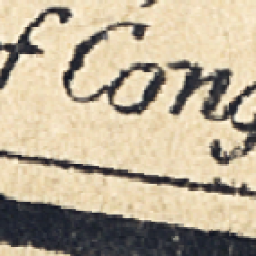 f Cong